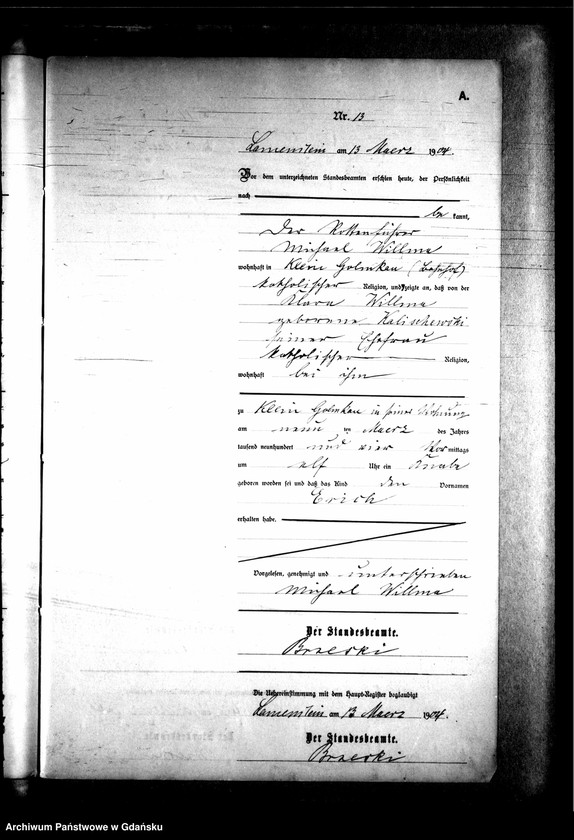 A.
Nr. 13
Lamenstein am 13 Maerz 1904.
Vor dem unterzeichneten Standesbeamten erschien heute, der Persönlichkeit
nach
be kannt,
Der Rottenführer
Michael Willma
wohnhaft in Klein Golmkau (Bahnhof)
katholischer Religion, und zeigte an, daß von der
Klara Willma
geborene Kalischewski
seiner Ehefrau
katholischer Religion,
wohnhaft bei ihm
zu Klein Golmkau in seiner Wohnung
am neun ten Maerz des Jahres
tausend neunhundert und vier Vor mittags
um elf Uhr ein Knabe
geboren worden sei und daß das Kind den Vornamen
Erich
erhalten habe.
Vorgelesen, genehmigt und unterschrieben
Michael Willma
Der Standesbeamte.
Die Uebereinstimmung mit dem Haupt-Register beglaubigt
Lamenstein am 13 Maerz 1904.
Der Standesbeamte.
Archiwum Państwowe w Gdańsku